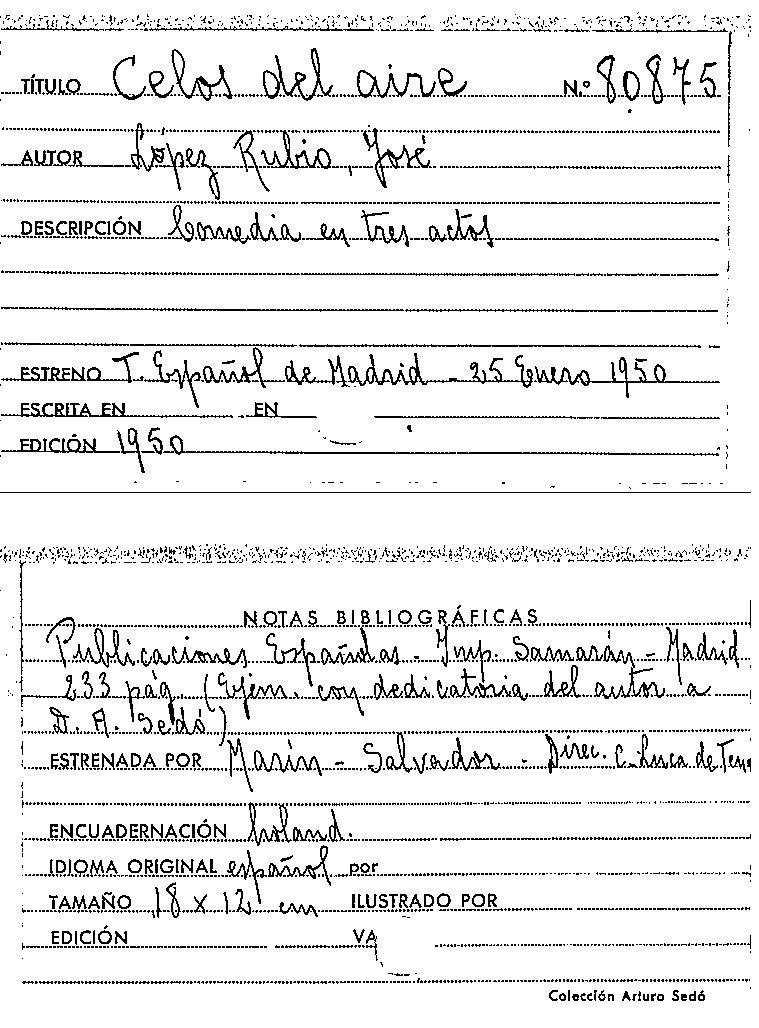 TÍTULO Celos del aire N.º 80875
AUTOR López Rubio, José
DESCRIPCIÓN Comedia en tres actos
ESTRENO T. Español de Madrid - 25 Enero 1950
ESCRITA EN EN
EDICIÓN 1950
NOTAS BIBLIOGRÁFICAS
Publicaciones Españolas - Imp. Samarán - Madrid
233 pág (Ejem. con dedicatoria del autor a
D. A. Sedó)
ESTRENADA POR Marín - Salvador - Direc. C. Luca de Ten
ENCUADERNACIÓN holand.
IDIOMA ORIGINAL español por
TAMAÑO 18 x 12 cm ILUSTRADO POR
EDICIÓN VA
Colección Arturo Sedó